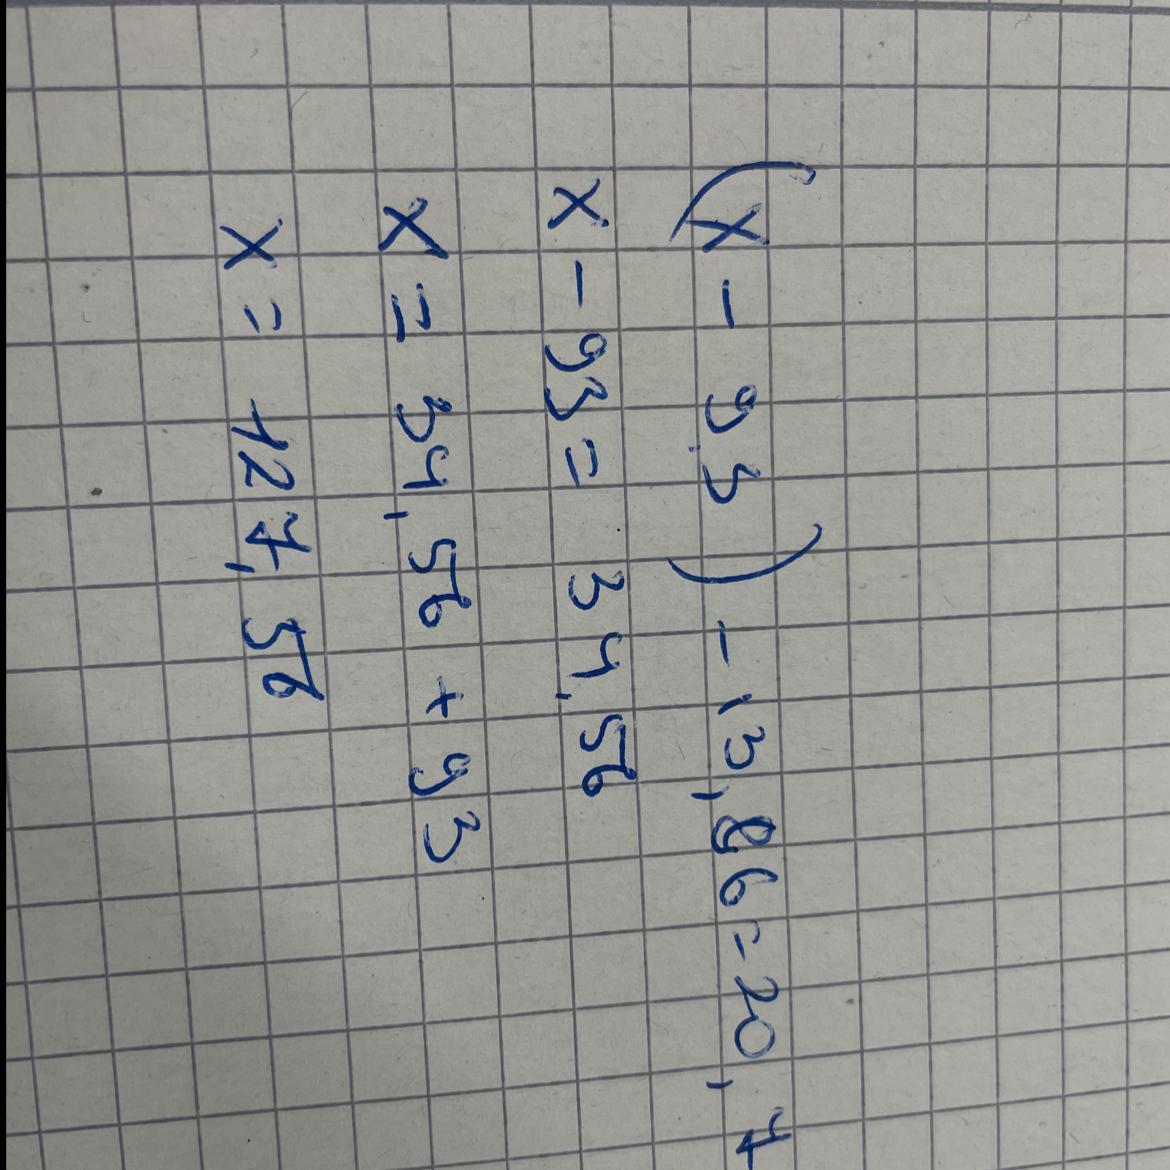 (x - 9,3) - 13,86 = 20,7
x - 93 = 34,56
x = 34,56 + 93
x = 127,56